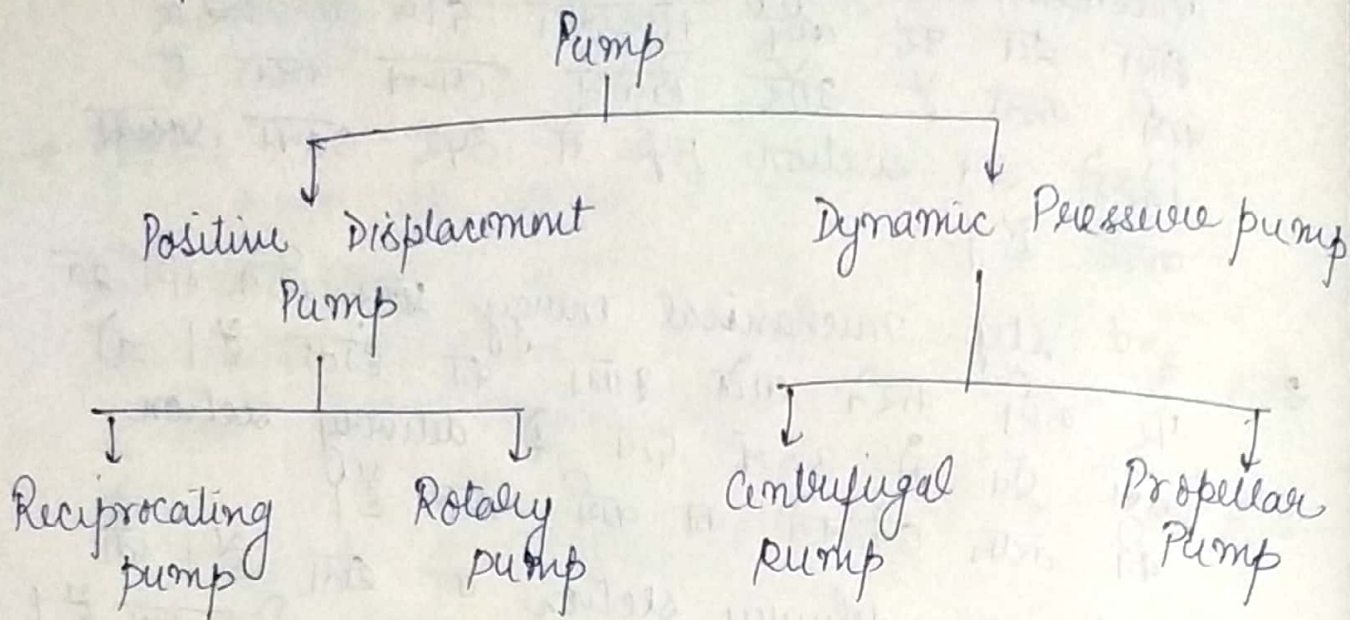 Pump
Positive Displacement
Pump
Dynamic Pressure pump
Reciprocating
pump
Rotary
pump
Centrifugal
pump
Propellar
Pump